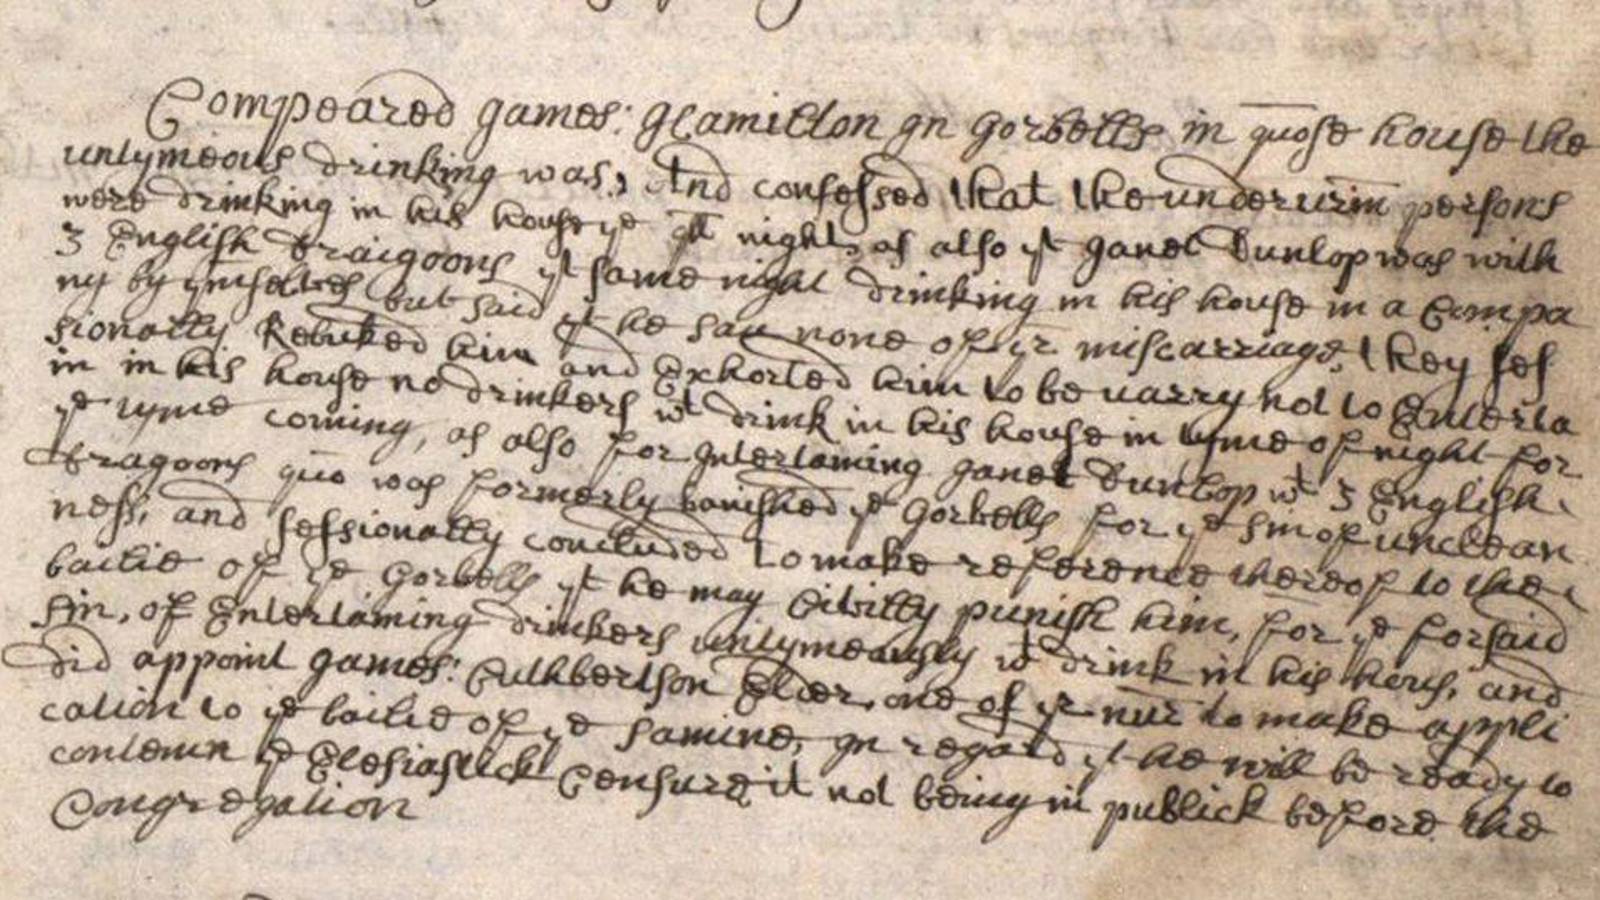 Compeared James: Hamillon In Gorbells in quose house the
untymeous drinking was, And confessed that the underwrin persons
were drinking in his house ye qll night, as also yt Janet Dunlop was with
3 English Draigoons yt same night drinking in his house in a Compa
ny by ymselves but said yt he saw none of yr miscarriage, they ses
sionally Rebuked him and Exhorted him to be warry not to Enterta
in in his house no drinkers wt drink in his house in tyme of night for
ye tyme coming, as also for Intertaining Janet Dunlop wt 3 English
dragoons quo was formerly banished ye Gorbells for ye sin of unclean
ness, and sessionally concluded to make reference thereof to the
bailie of ye Gorbells yt he may Civilly punish him, for ye forsaid
sin, of Entertaining drinkers untymeously wt drink in his hous, and
did appoint James: Cuthbertson Elder, one of yr nur to make appli
cation to ye bailie of ye samine, In regard yt he will be ready to
contemn ye Eclesiastick Censure it not being in publick before the
Congregation